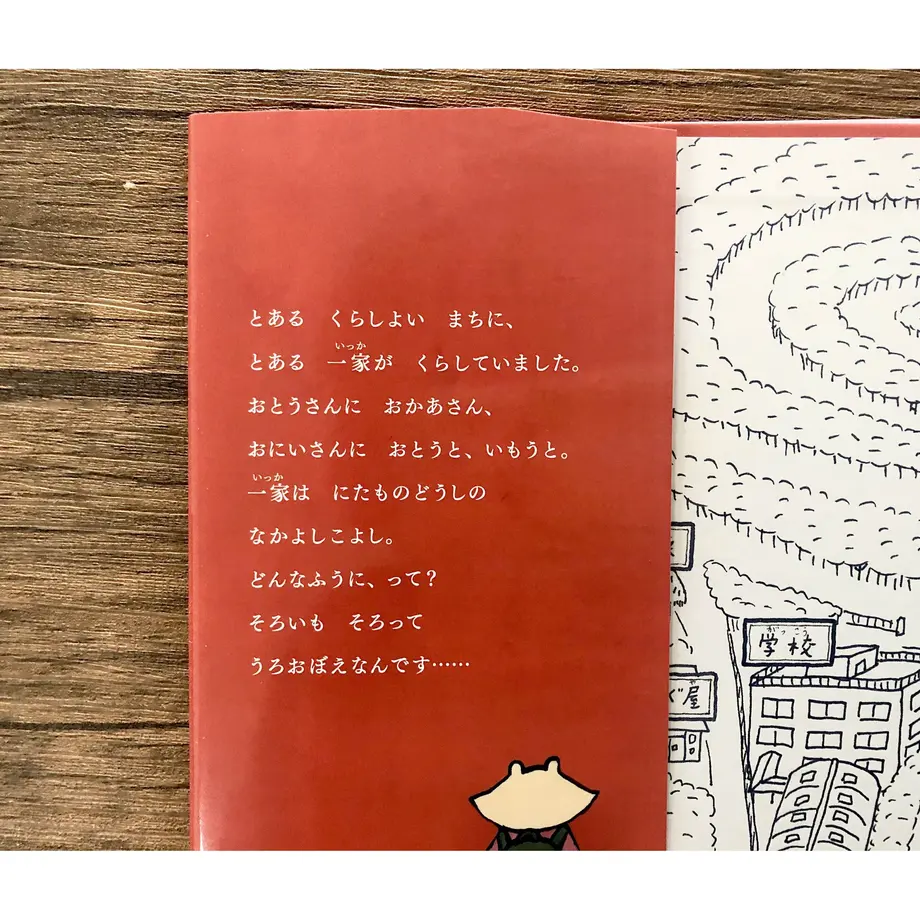 とある　くらしよい　まちに、
いっか
とある　一家が　くらしていました。
おとうさんに　おかあさん、
おにいさんに　おとうと、いもうと。
いっか
一家は　にたものどうしの
なかよしこよし。
どんなふうに、って？
そろいも　そろって
うろおぼえなんです……
がっこう
学校
や
ぐ屋